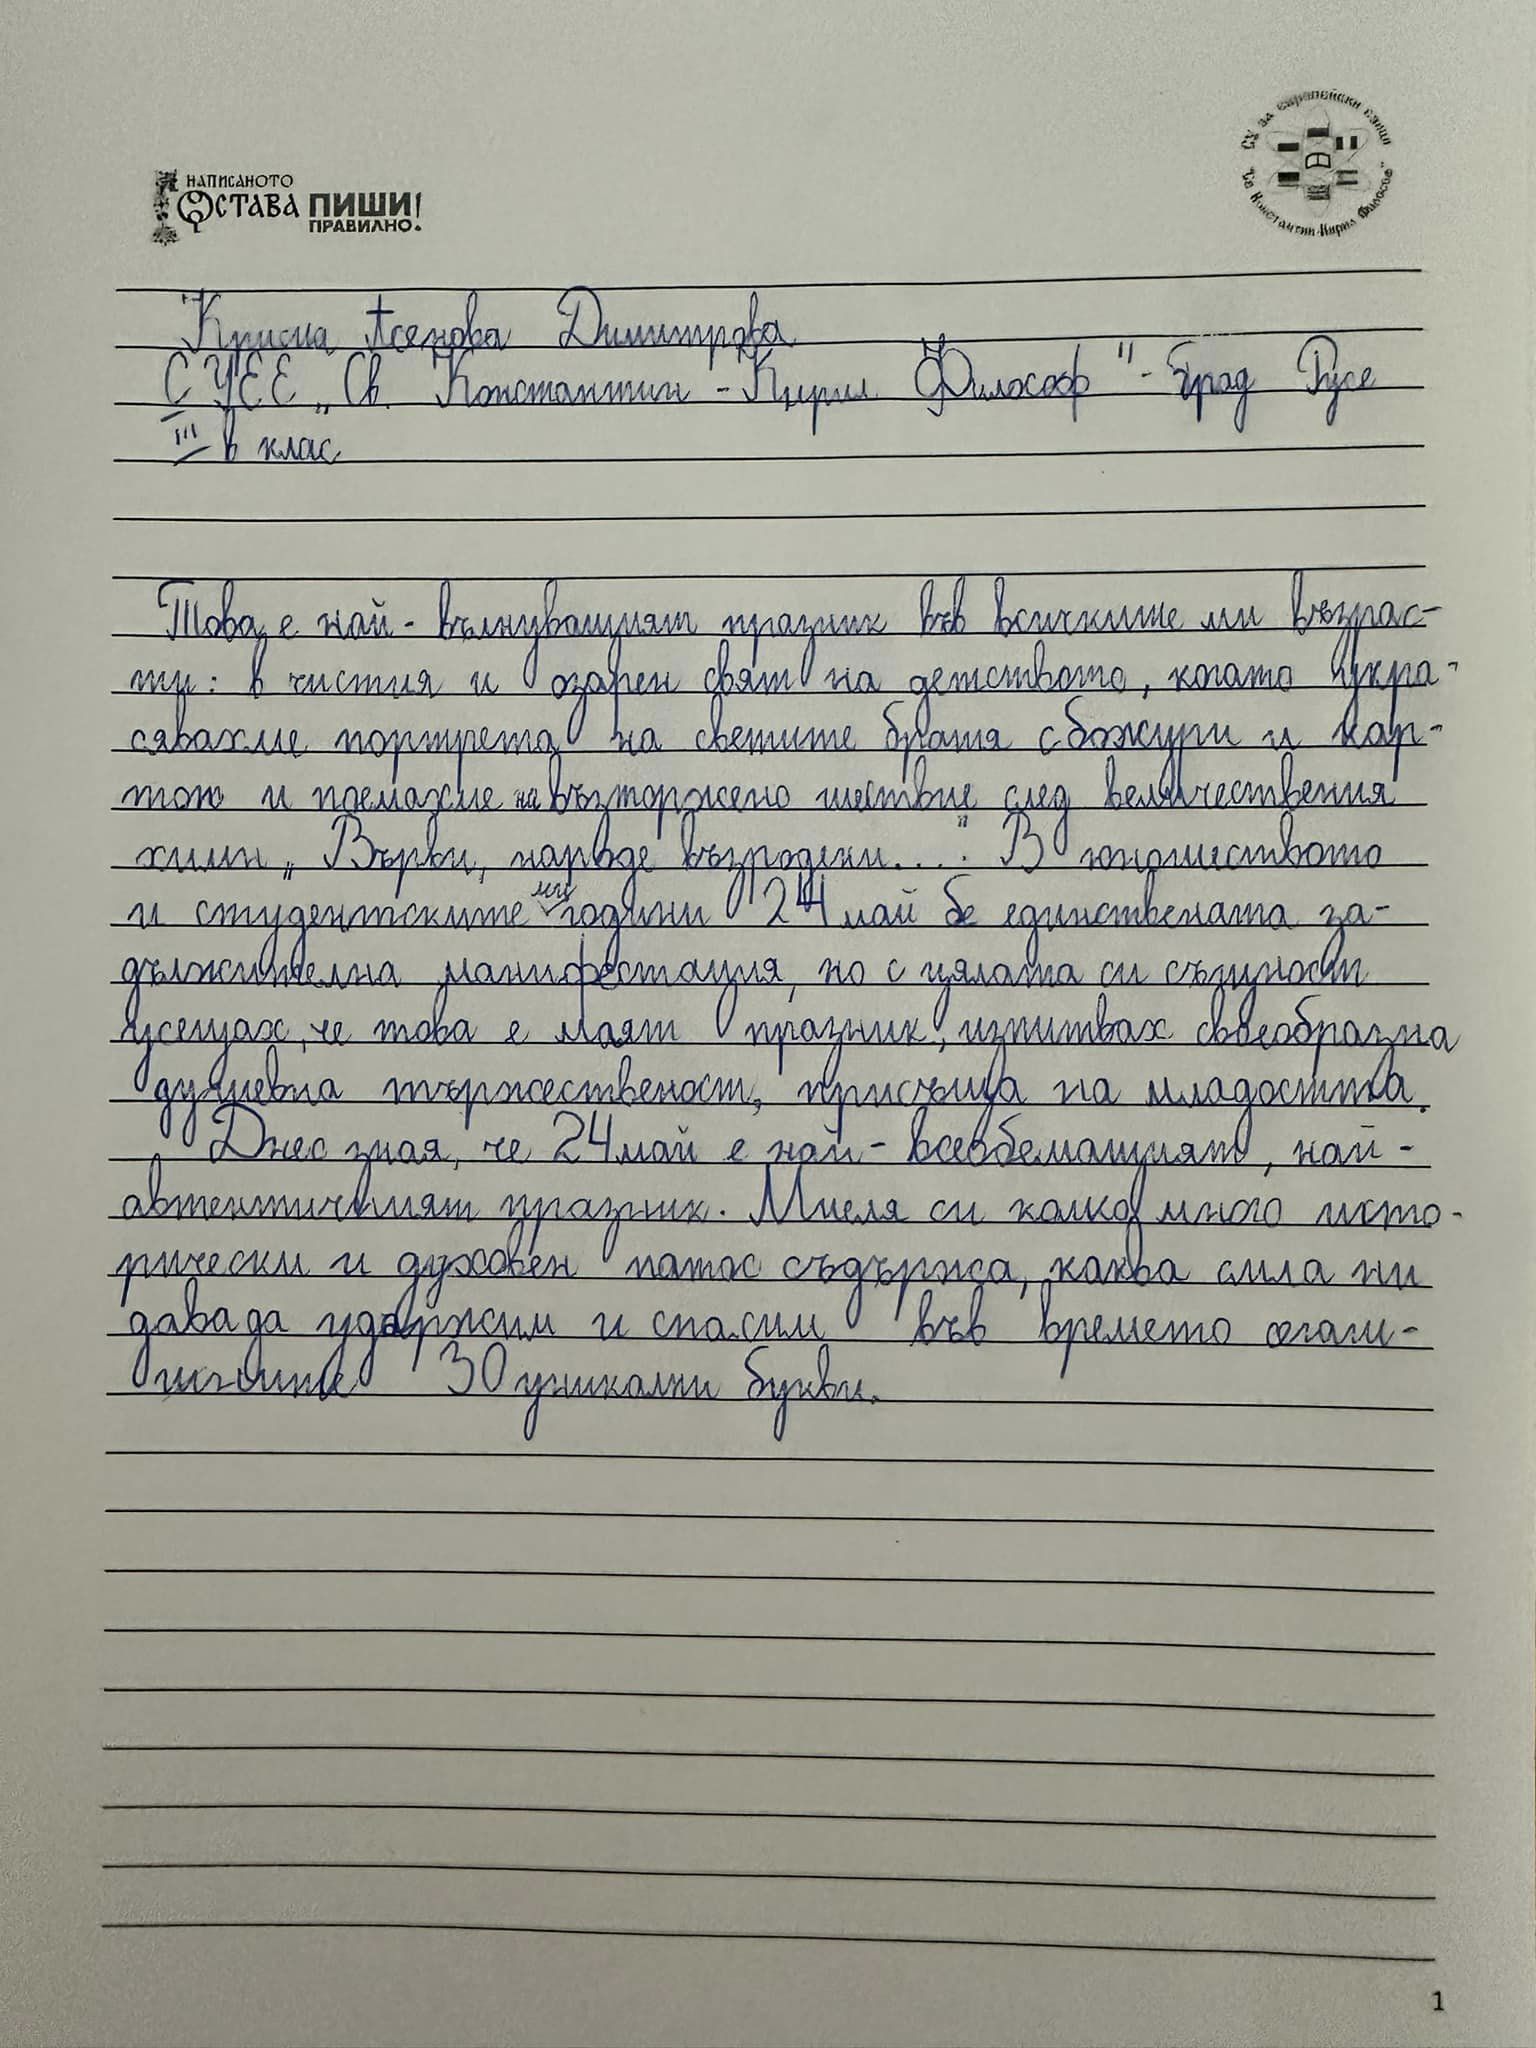 НАПИСАНОТО
ОСТАВА ПИШИ
ПРАВИЛНО!
СУ за европейски езици
"Св Константин-Кирил Философ"
Асенова Димитрова
СУЕЕ „Св. Константин - Кирил Философ" - град Русе
III в клас
Това е най-вълнуващият празник във всичките ми възрас-
ти: в чистия и озарен свят на детството, когато укра-
сявахме портрета на светите братя с божури и кар-
тон и поемахме на възторжено шествие след величествения
химн „Върви, народе възродени...." В юношеството
и студентските ми години 24 май бе единствената за-
дължителна манифестация, но с цялата си същност
усещах, че това е моят празник, изпитвах своеобразна
душевна тържественост, присъща на младостта.
Днес зная, че 24 май е най-всеобемащият, най-
автентичният празник. Мисля си колко много исто-
рически и духовен патос съдържа, каква сила ни
дава да удържим и спасим във времето
30 уникални букви.
1